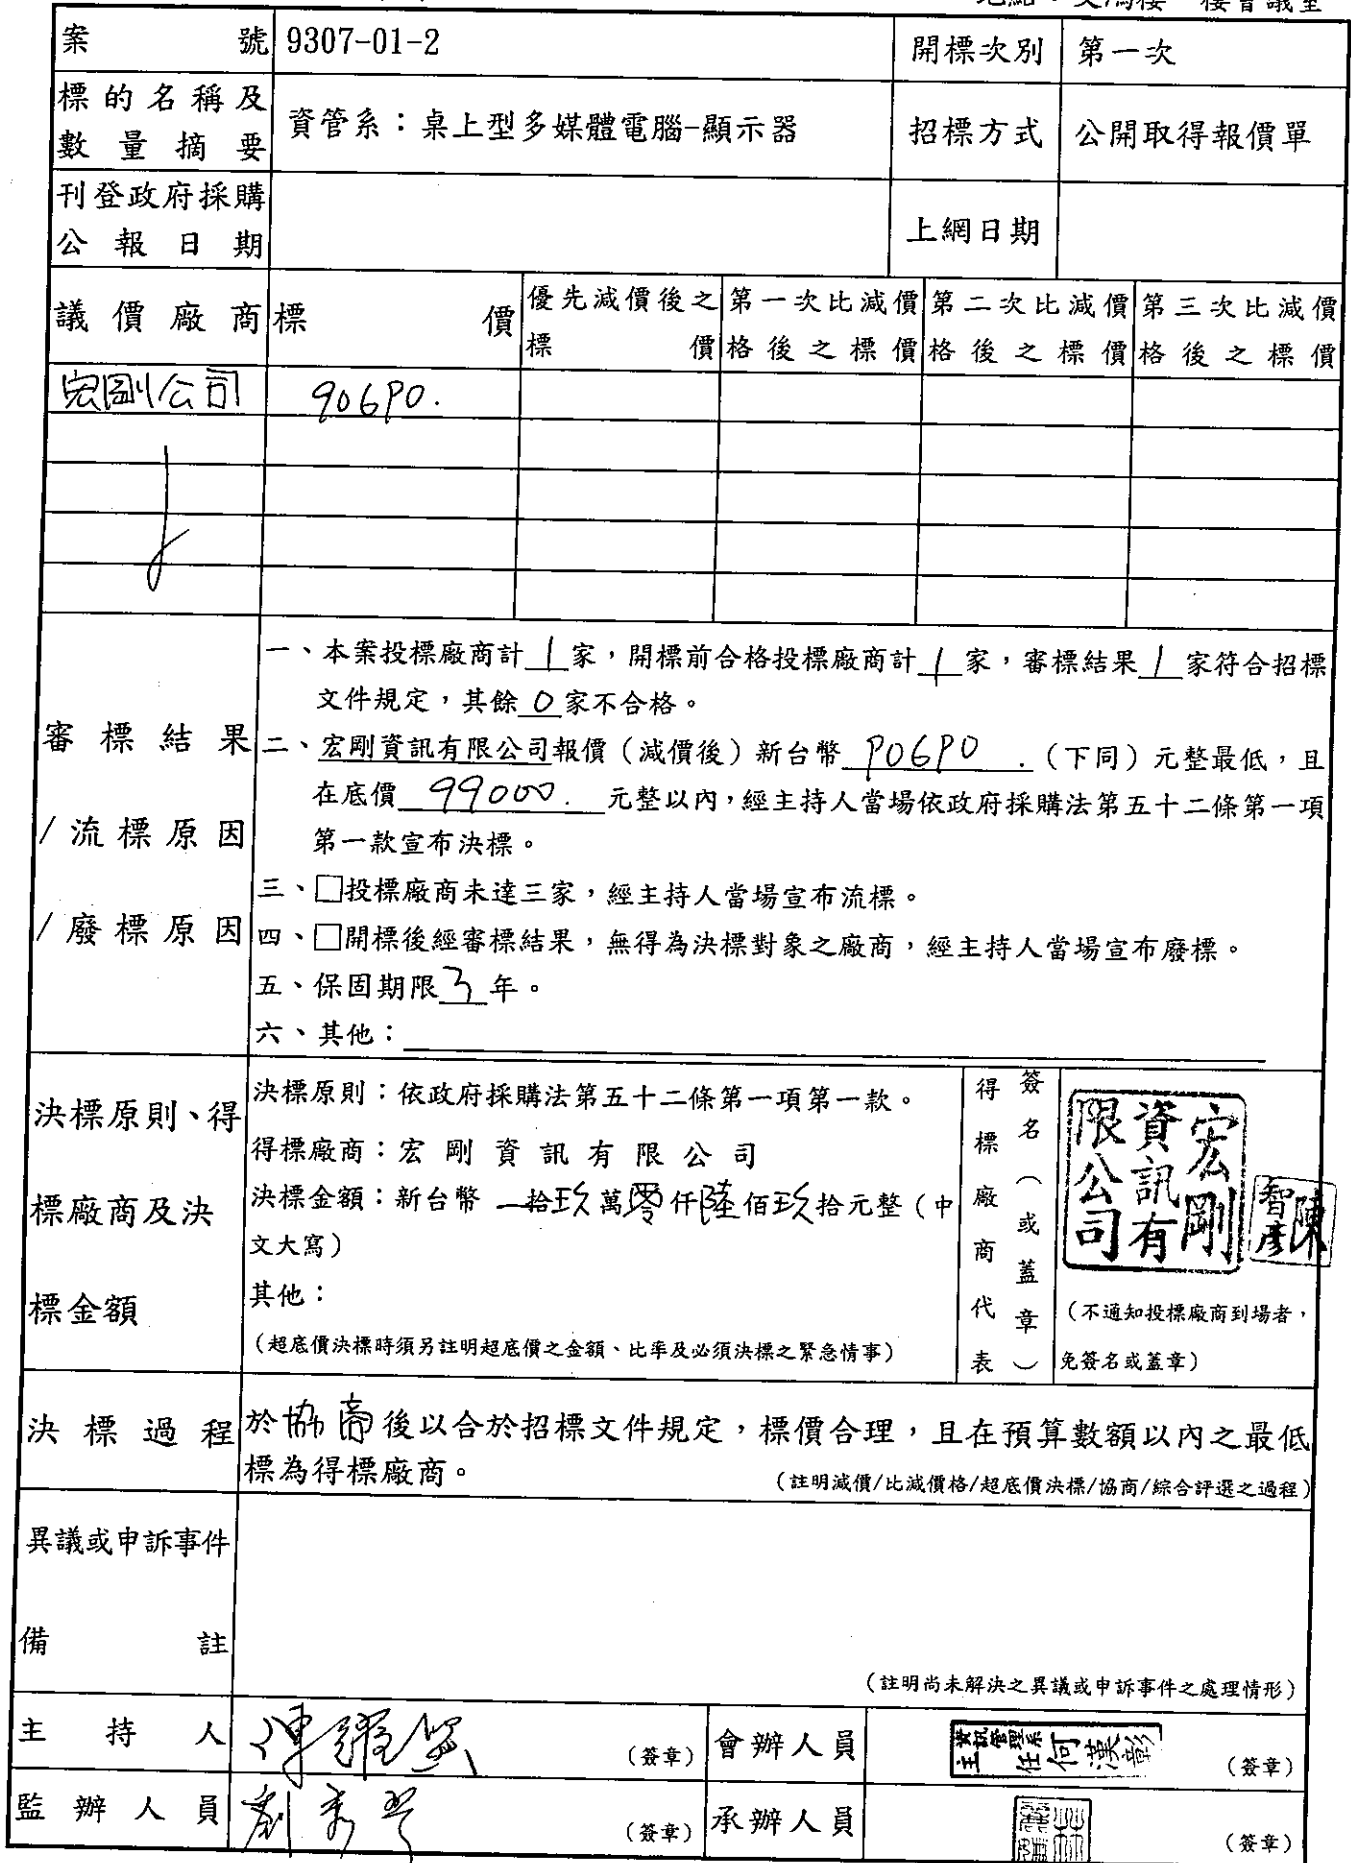 案號 9307-01-2 開標次別 第一次
標的名稱及數量摘要 資管系：桌上型多媒體電腦-顯示器 招標方式 公開取得報價單
刊登政府採購公報日期 上網日期
議價廠商 標價 優先減價後之標價 第一次比減價格後之標價 第二次比減價格後之標價 第三次比減價格後之標價
宏剛公司 90690.
審標結果
/流標原因
/廢標原因
一、本案投標廠商計 1 家，開標前合格投標廠商計 1 家，審標結果 1 家符合招標
文件規定，其餘 0 家不合格。
二、宏剛資訊有限公司報價（減價後）新台幣 90690 .（下同）元整最低，且
在底價 99000. 元整以內，經主持人當場依政府採購法第五十二條第一項
第一款宣布決標。
三、□投標廠商未達三家，經主持人當場宣布流標。
四、□開標後經審標結果，無得為決標對象之廠商，經主持人當場宣布廢標。
五、保固期限 3 年。
六、其他：
決標原則、得
標廠商及決
標金額
決標原則：依政府採購法第五十二條第一項第一款。
得標廠商：宏剛資訊有限公司
決標金額：新台幣 拾玖萬零仟陸佰玖拾元整（中
文大寫）
其他：
（超底價決標時須另註明超底價之金額、比率及必須決標之緊急情事）
得標廠商代表
簽名（或蓋章）
宏剛資訊有限公司
陳智彥
（不通知投標廠商到場者，
免簽名或蓋章）
決標過程
於協商後以合於招標文件規定，標價合理，且在預算數額以內之最低
標為得標廠商。
（註明減價/比減價格/超底價決標/協商/綜合評選之過程）
異議或申訴事件
備註
（註明尚未解決之異議或申訴事件之處理情形）
主持人 （簽章） 會辦人員 資訊管理系主任 何漢彰 （簽章）
監辦人員 （簽章） 承辦人員 （簽章）